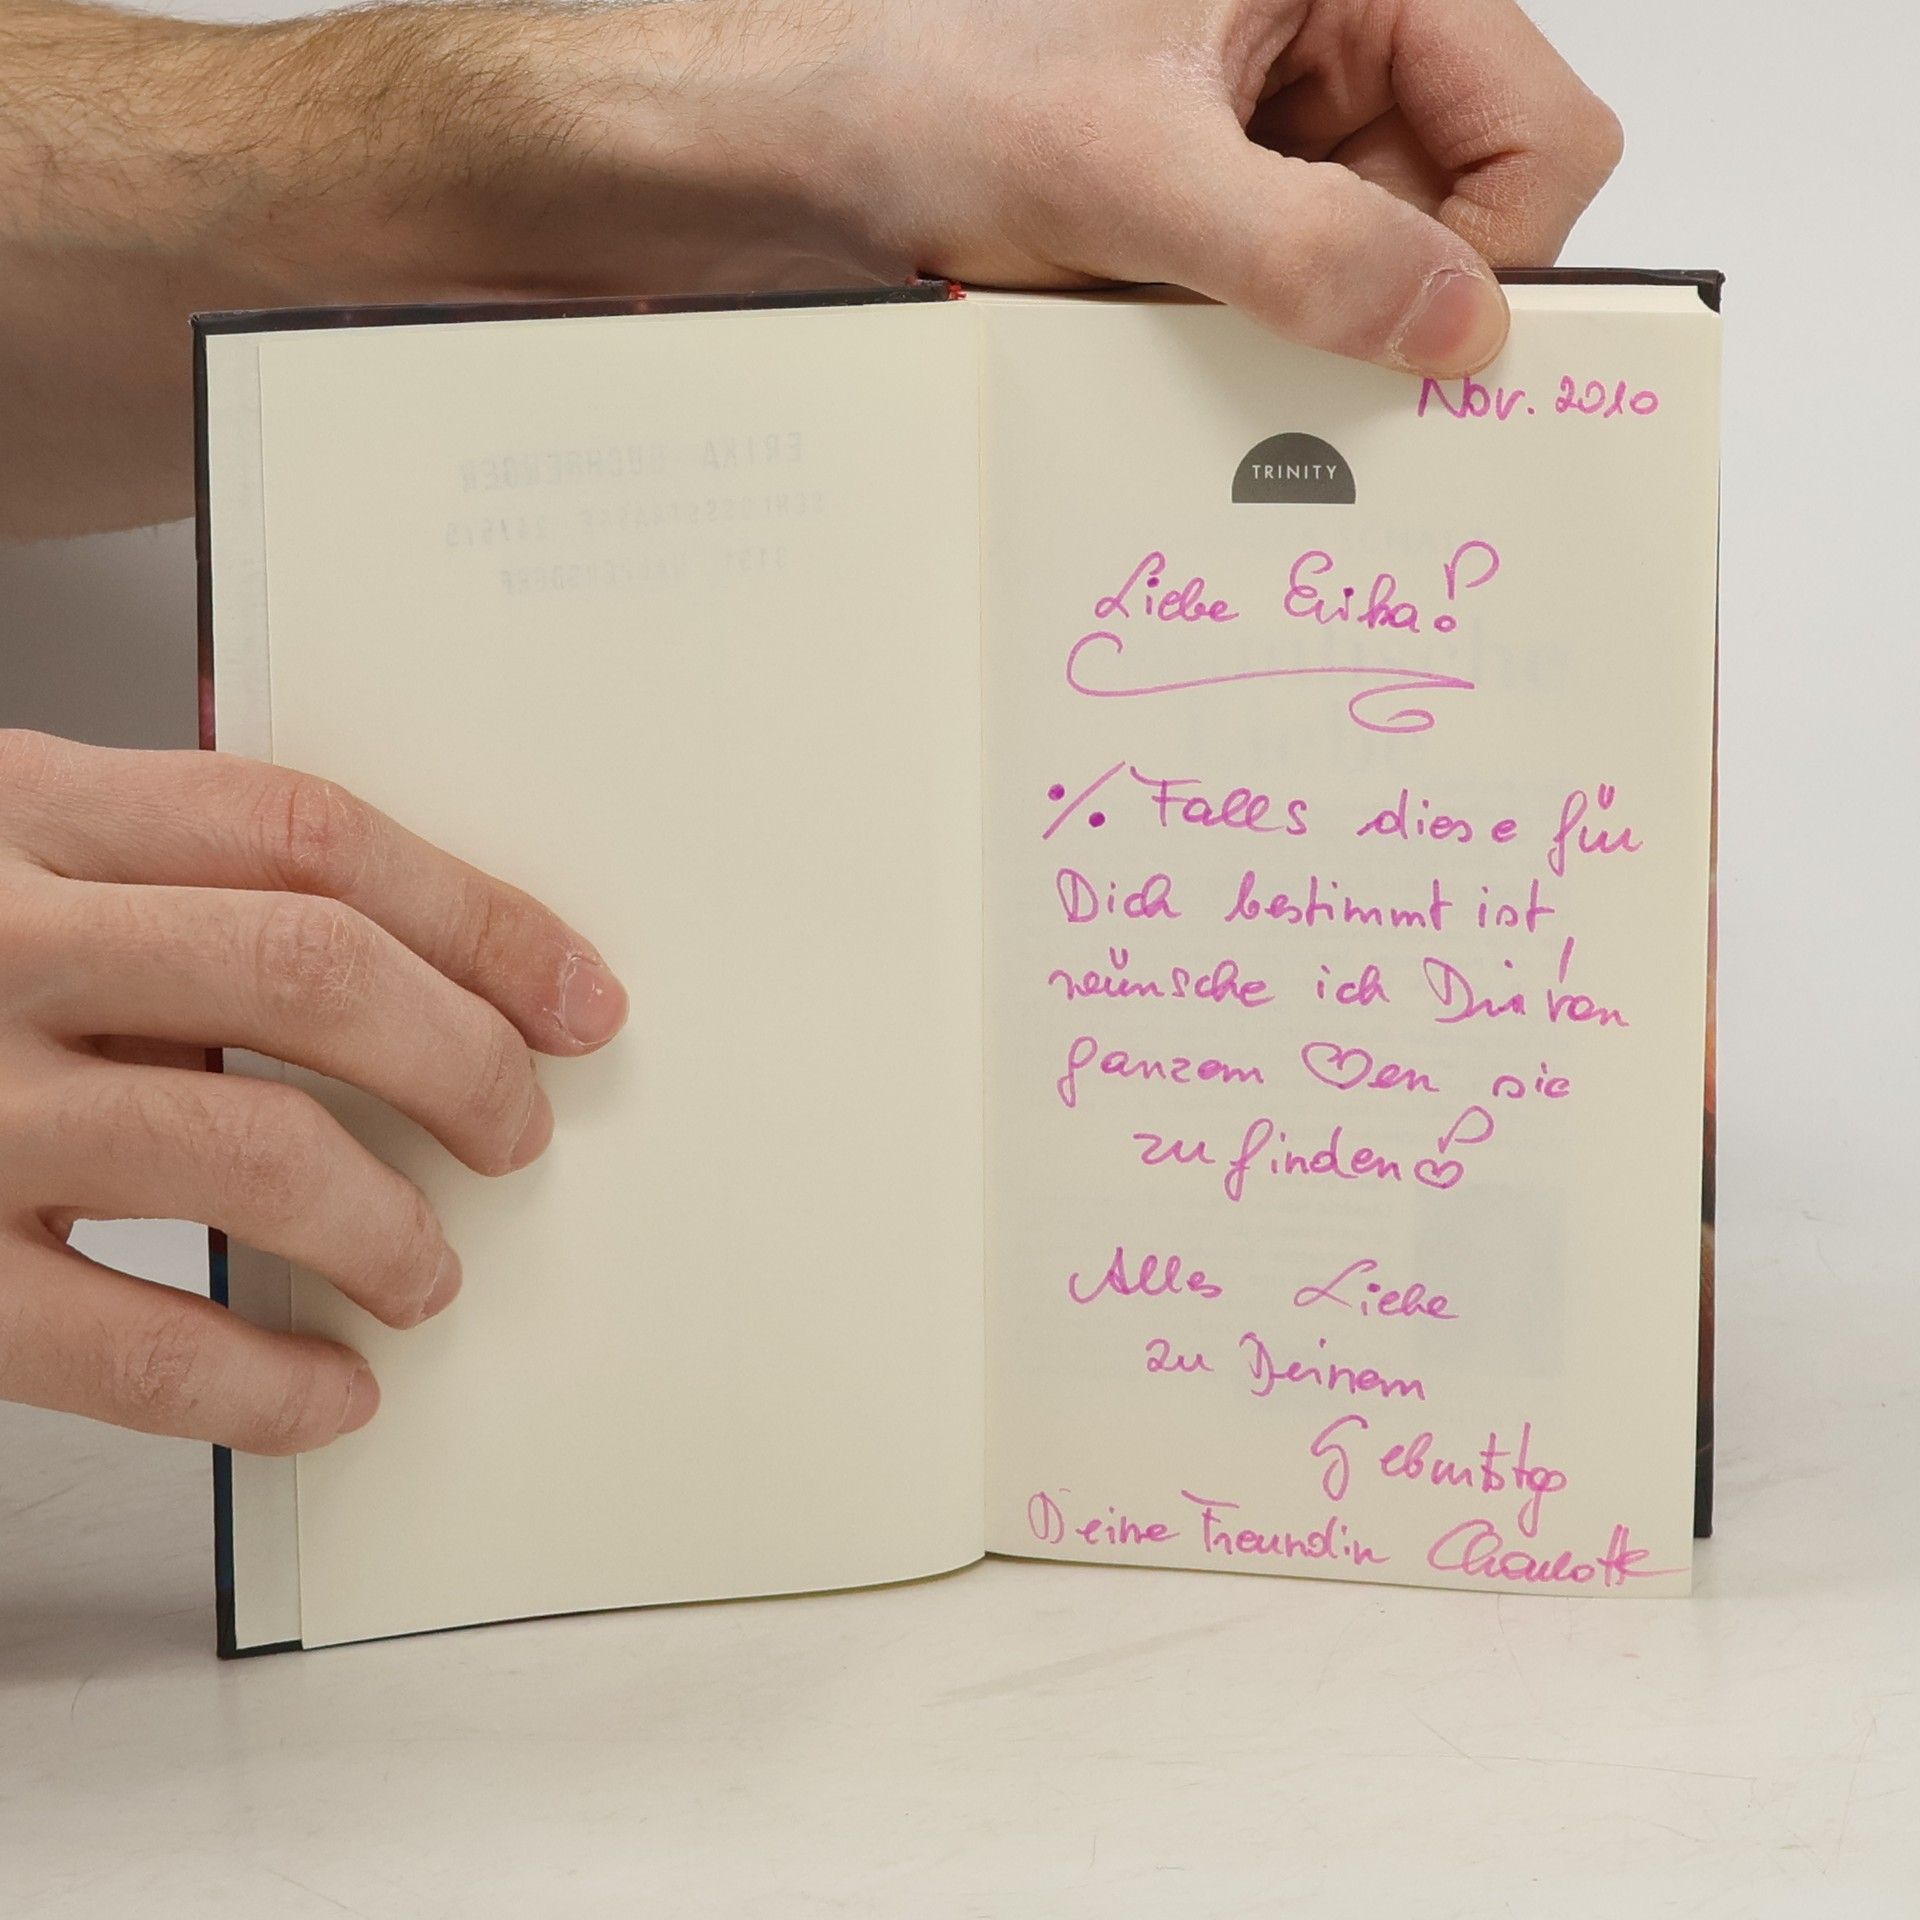 Nov. 2010
TRINITY
Liebe Erika!
·/. Falls diese für
Dich bestimmt ist,
wünsche ich Dir von
ganzem ♡en sie
zu finden!
Alles Liebe
zu Deinem
Geburtstag
Deine Freundin Charlotte
ERIKA